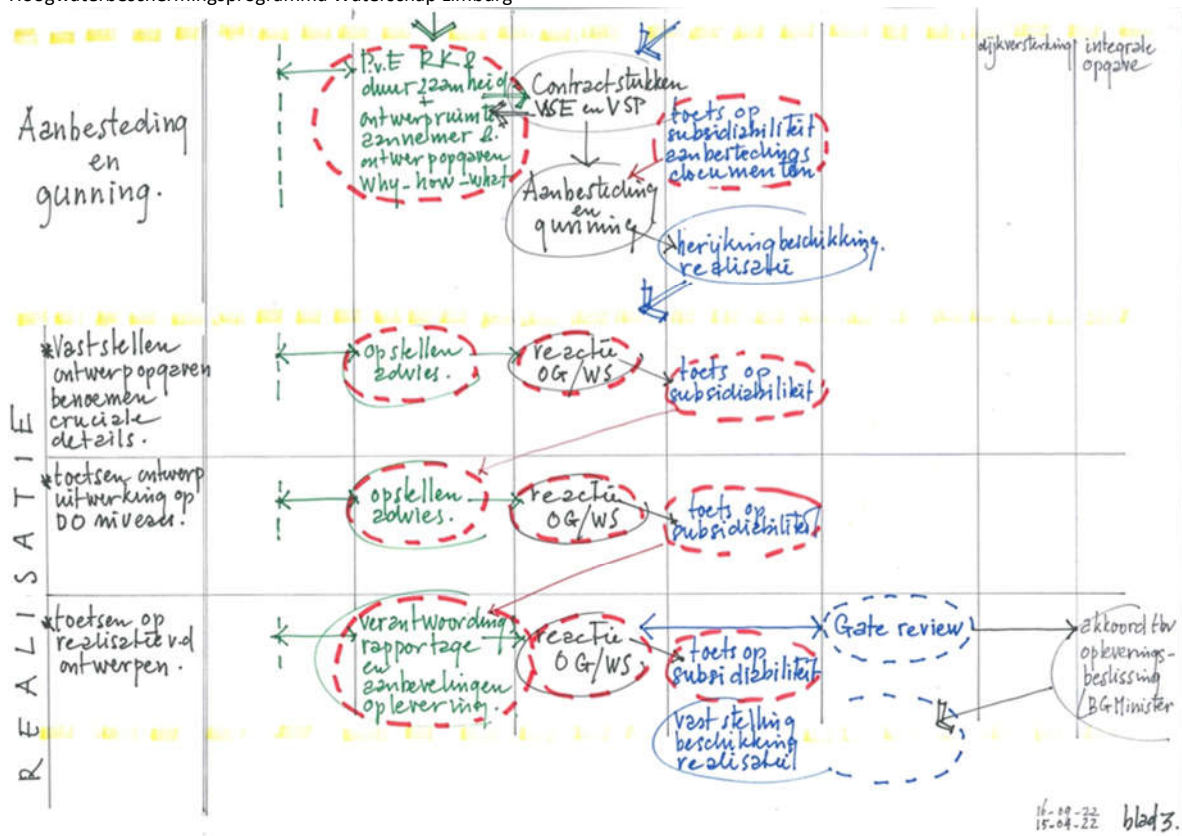 Hoogwaterbeschermingsprogramma Waterschap Limburg
dijkversterking
integrale
opgave
Aanbesteding
en
gunning.
P.v.E RK &
duurzaamheid
+
ontwerpruimte
aannemer &
ontwerpopgaven
Why-how-what
Contractstukken
VSE en VSP
toets op
subsidiabiliteit
aanbestedings
documenten
Aanbesteding
en
gunning
herijking beschikking.
realisatie
REALISATIE
*Vaststellen
ontwerpopgaven
benoemen
cruciale
details.
opstellen
advies.
reactie
OG/WS
toets op
subsidiabilikit
*toetsen ontwerp
uitwerking op
DO niveau.
opstellen
advies.
reactie
OG/WS
toets op
subsidiabiliteit
*toetsen op
realisatie v.d
ontwerpen.
verantwoording
rapportage
en
aanbevelingen
oplevering.
reactie
OG/WS
toets op
subsidiabiliteit
Gate review
akkoord tbv
opleverings-
beslissing
/BG Minister
vaststelling
beschikking
realisatie
16-09-22
15-04-22
blad 3.